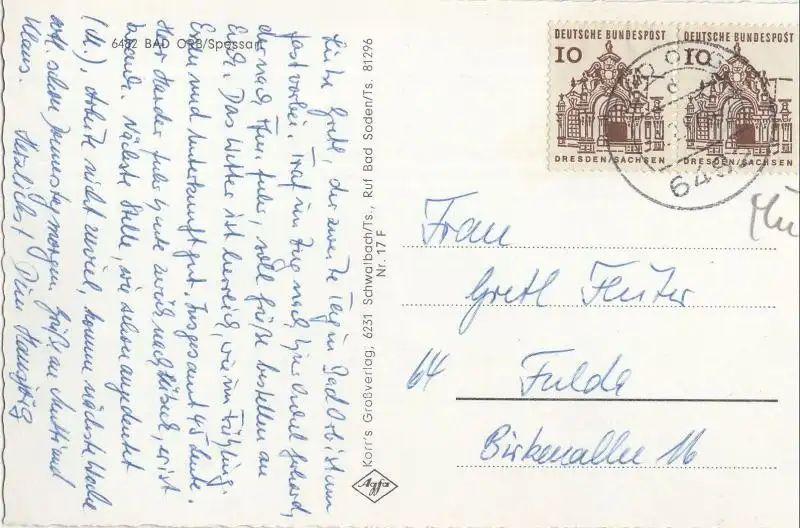 6482 BAD ORB/Spessart
Liebe Gretl, der zweite Tag in Bad Orb ist nun
fast vorbei. Traf im Zug nach
der nach fuhr, soll Grüße bestellen an
Euch. Das Wetter ist herrlich, wie im Frühling.
Essen und Unterkunft gut. Insgesamt 45 Leute.
Herr fuhr heute zurück nach er ist
krank. Nächste Stelle, wie schon angedeutet
Arbeite nicht zuviel, komme nächste Woche
schon Donnerstag morgen. Grüße an Mutti und
Klaus. Herzlichst Dein Hansjörg
Korr's Großverlag, 6231 Schwalbach/Ts., Ruf Bad Soden/Ts. 81296
Nr. 17 F
Agfa
DEUTSCHE BUNDESPOST
10
DRESDEN/SACHSEN
DEUTSCHE BUNDESPOST
10
DRESDEN/SACHSEN
Frau
Gretl
64 Fulda
Birkenallee 16